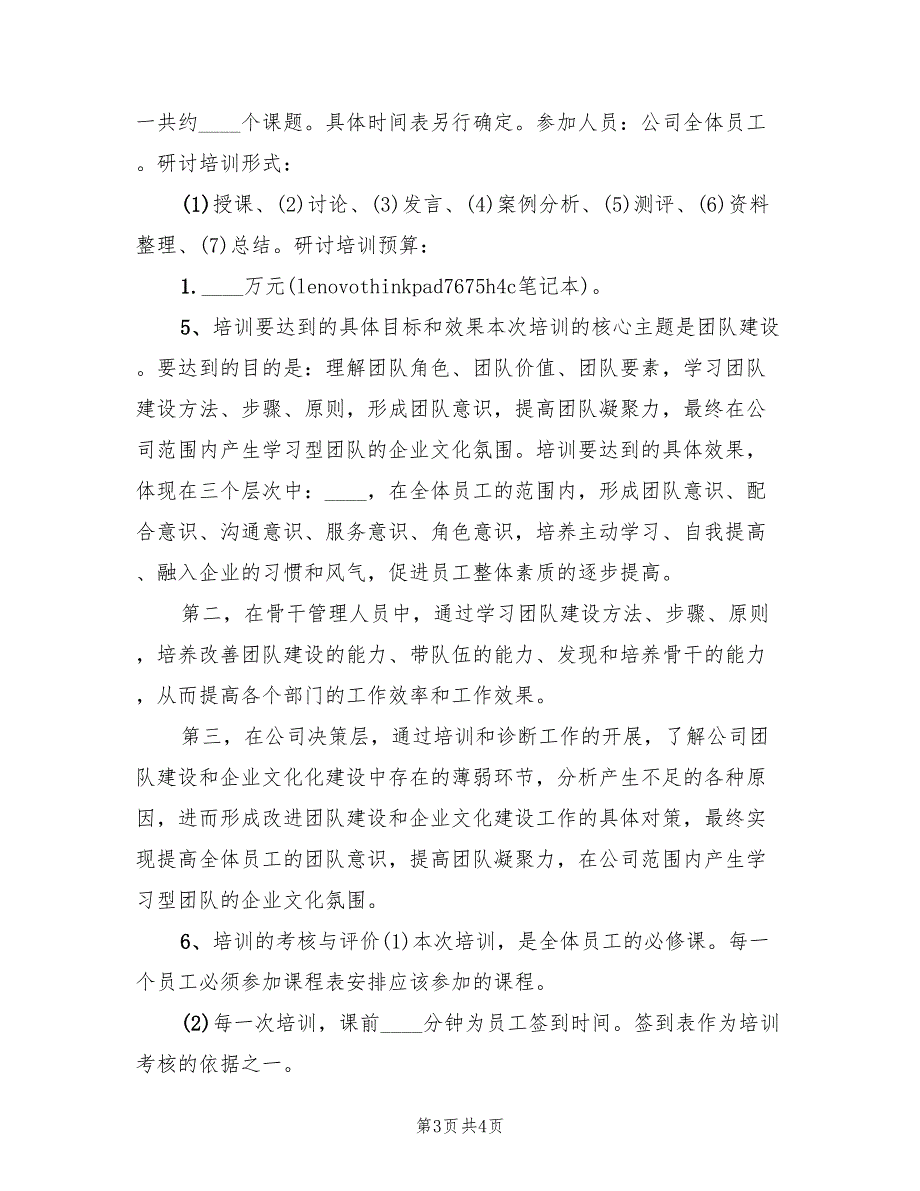 一共约____个课题。具体时间表另行确定。参加人员：公司全体员工
。研讨培训形式：
(1)授课、(2)讨论、(3)发言、(4)案例分析、(5)测评、(6)资料
整理、(7)总结。研讨培训预算：
1.____万元(lenovothinkpad7675h4c笔记本)。
5、培训要达到的具体目标和效果本次培训的核心主题是团队建设
。要达到的目的是：理解团队角色、团队价值、团队要素，学习团队
建设方法、步骤、原则，形成团队意识，提高团队凝聚力，最终在公
司范围内产生学习型团队的企业文化氛围。培训要达到的具体效果，
体现在三个层次中：____，在全体员工的范围内，形成团队意识、配
合意识、沟通意识、服务意识、角色意识，培养主动学习、自我提高
、融入企业的习惯和风气，促进员工整体素质的逐步提高。
第二，在骨干管理人员中，通过学习团队建设方法、步骤、原则
，培养改善团队建设的能力、带队伍的能力、发现和培养骨干的能力
，从而提高各个部门的工作效率和工作效果。
第三，在公司决策层，通过培训和诊断工作的开展，了解公司团
队建设和企业文化化建设中存在的薄弱环节，分析产生不足的各种原
因，进而形成改进团队建设和企业文化建设工作的具体对策，最终实
现提高全体员工的团队意识，提高团队凝聚力，在公司范围内产生学
习型团队的企业文化氛围。
6、培训的考核与评价(1)本次培训，是全体员工的必修课。每一
个员工必须参加课程表安排应该参加的课程。
(2)每一次培训，课前____分钟为员工签到时间。签到表作为培训
考核的依据之一。
第3页共4页